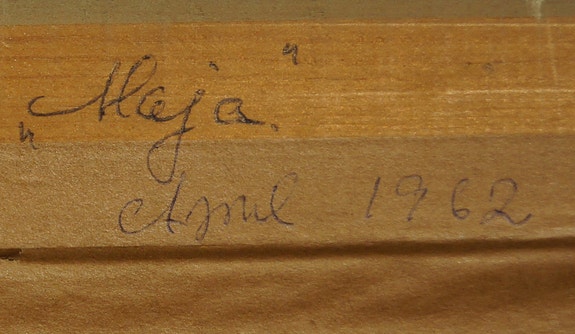 „Maja."
April 1962